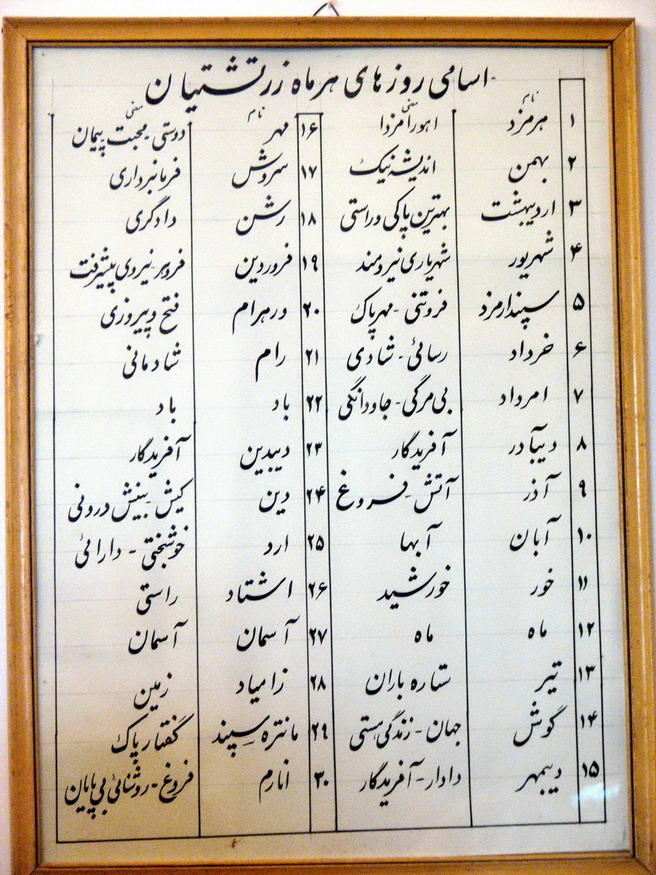 اسامی روزهای هر ماه زرتشتیان
نام معنی نام معنی
۱ هرمزد اهورامزدا ۱۶ مهر دوستی - محبت - پیمان
۲ بهمن اندیشه نیک ۱۷ سروش فرمانبرداری
۳ اردیبهشت بهترین پاکی و راستی ۱۸ رشن دادگری
۴ شهریور شهریاری نیرومند ۱۹ فروردین فروهر - نیروی پیشرفت
۵ سپندارمزد فروتنی - مهر پاک ۲۰ ورهرام فتح و پیروزی
۶ خرداد رسائی - شادی ۲۱ رام شادمانی
۷ امرداد بی مرگی - جاودانگی ۲۲ باد باد
۸ دیبآدر آفریدگار ۲۳ دیبدین آفریدگار
۹ آذر آتش - فروغ ۲۴ دین کیش - بینش درونی
۱۰ آبان آبها ۲۵ ارد خوشبختی - دارائی
۱۱ خور خورشید ۲۶ اشتاد راستی
۱۲ ماه ماه ۲۷ آسمان آسمان
۱۳ تیر ستاره باران ۲۸ زامیاد زمین
۱۴ گوش جهان - زندگی هستی ۲۹ مانتره سپند گفتار پاک
۱۵ دیبمهر دادار - آفریدگار ۳۰ انارم فروغ - روشنائی بی پایان